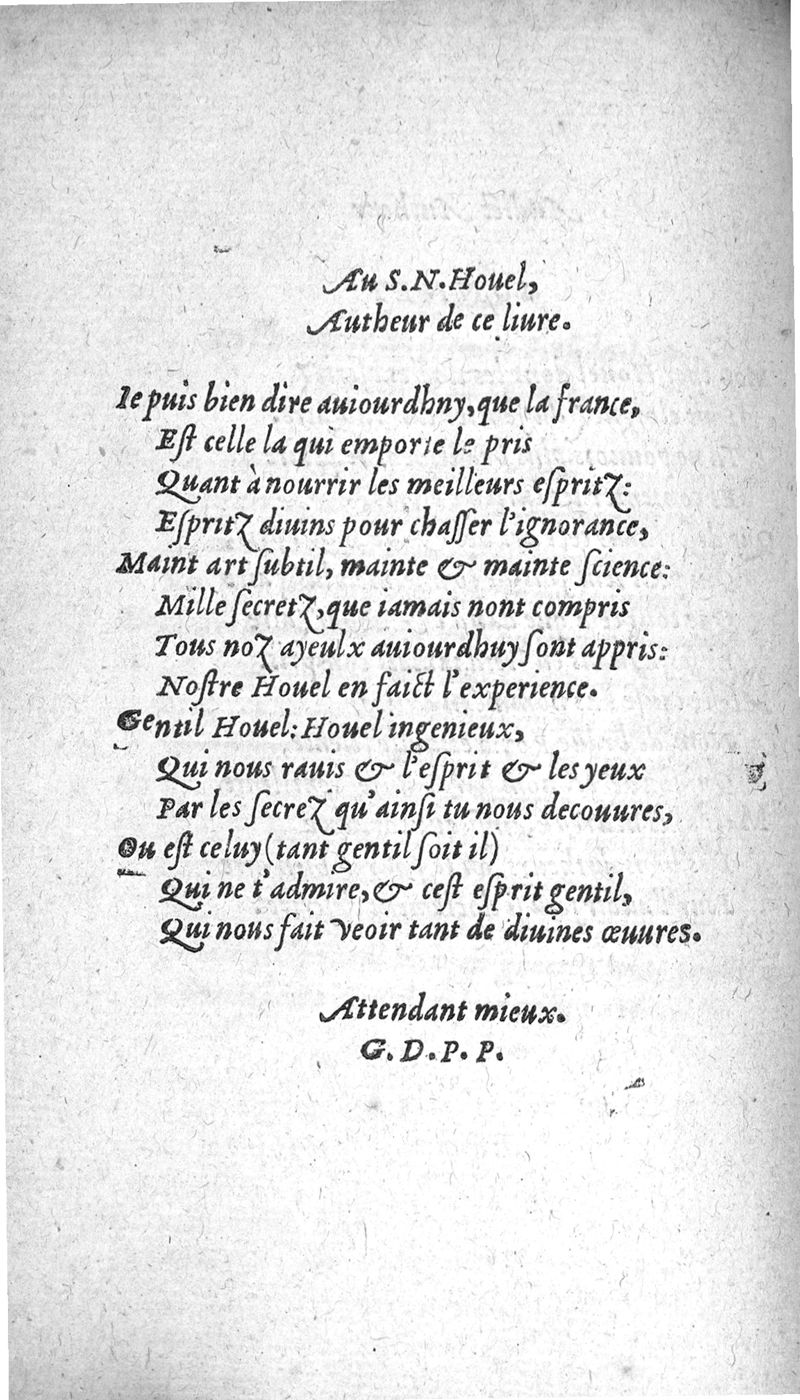 Au S.N.Houel,
Autheur de ce liure.
Ie puis bien dire auiourdhny, que la france,
Est celle la qui emporte le pris
Quant à nourrir les meilleurs eſpritz:
Eſpritz diuins pour chaſſer l'ignorance,
Maint art ſubtil, mainte & mainte ſcience:
Mille ſecretz, que iamais nont compris
Tous noz ayeulx auiourdhuy ſont appris:
Noſtre Houel en faict l'experience.
Gentil Houel: Houel ingenieux,
Qui nous rauis & l'eſprit & les yeux
Par les ſecrez qu'ainſi tu nous decouures,
Ou eſt celuy (tant gentil ſoit il)
Qui ne t'admire, & ceſt eſprit gentil,
Qui nous fait veoir tant de diuines œuures.
Attendant mieux.
G. D. P. P.